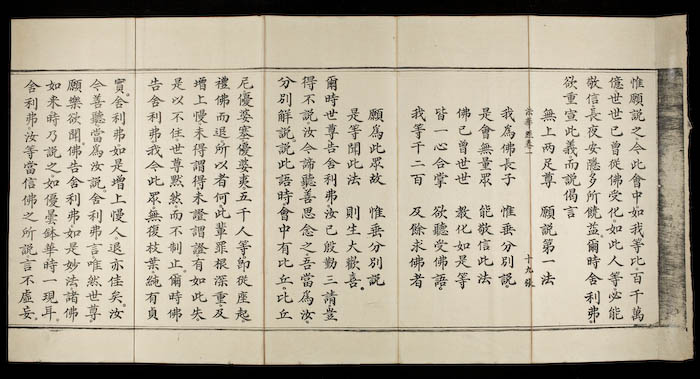 惟願說之今此會中如我等比百千萬
億世世已曾從佛受化如此人等必能
敬信長夜安隱多所饒益爾時舍利弗
欲重宣此義而說偈言
無上兩足尊　願說第一法
法華經卷一　十九張
我為佛長子　惟垂分別說
是會無量眾　能敬信此法
佛已曾世世　教化如是等
皆一心合掌　欲聽受佛語
我等千二百　及餘求佛者
願為此眾故　惟垂分別說
是等聞此法　則生大歡喜
爾時世尊告舍利弗汝已殷勤三請豈
得不說汝今諦聽善思念之吾當為汝
分別解說說此語時會中有比丘比丘
尼優婆塞優婆夷五千人等即從座起
禮佛而退所以者何此輩罪根深重及
增上慢未得謂得未證謂證有如此失
是以不住世尊默然而不制止爾時佛
告舍利弗我今此眾無復枝葉純有貞
實舍利弗如是增上慢人退亦佳矣汝
今善聽當為汝說舍利弗言唯然世尊
願樂欲聞佛告舍利弗如是妙法諸佛
如來時乃說之如優曇鉢華時一現耳
舍利弗汝等當信佛之所說言不虛妄